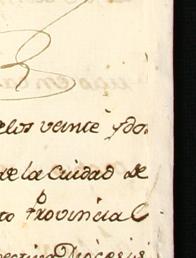 de los veinte y dos
de la Ciudad de
to Provincial
Diocesis